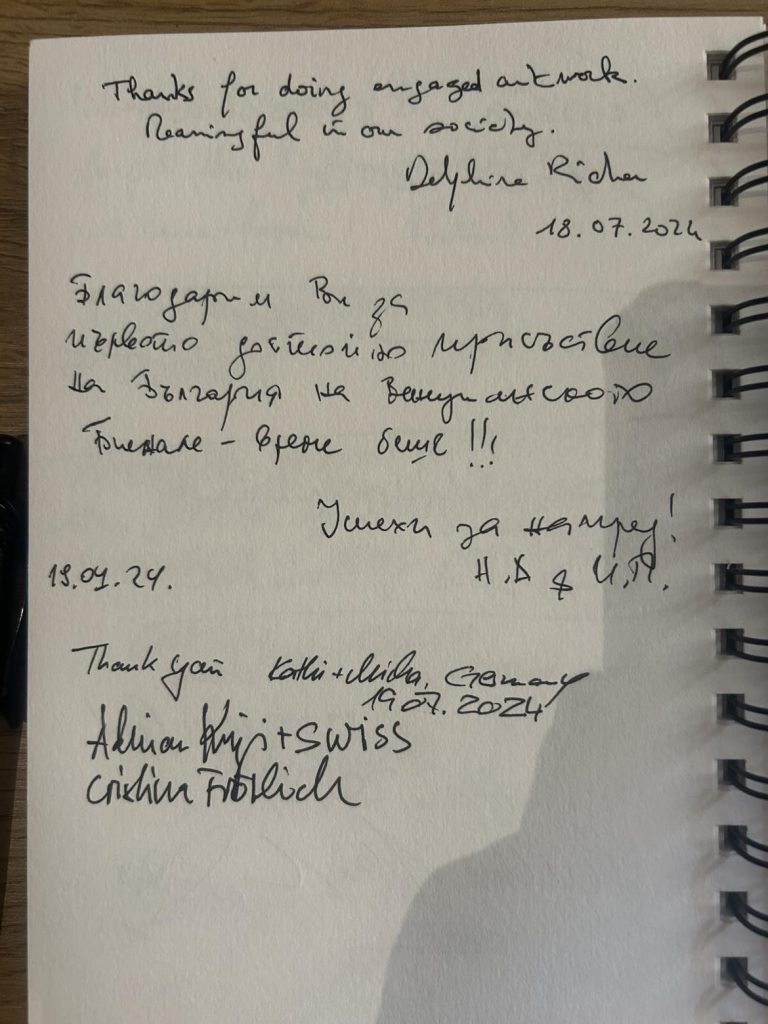 Thanks for doing engaged artwork.
Meaningful in our society.
Delphine Richer
18.07.2024
Благодарим Ви за
първото достойно присъствие
на България на Венецианското
Биенале - време беше!!!
Успехи за напред!
19.07.24.
Н.Д & И.П.
Thank you Kathi + Micha, Germany
19.07.2024
Adrian + Swiss
Cristina Fröhlich